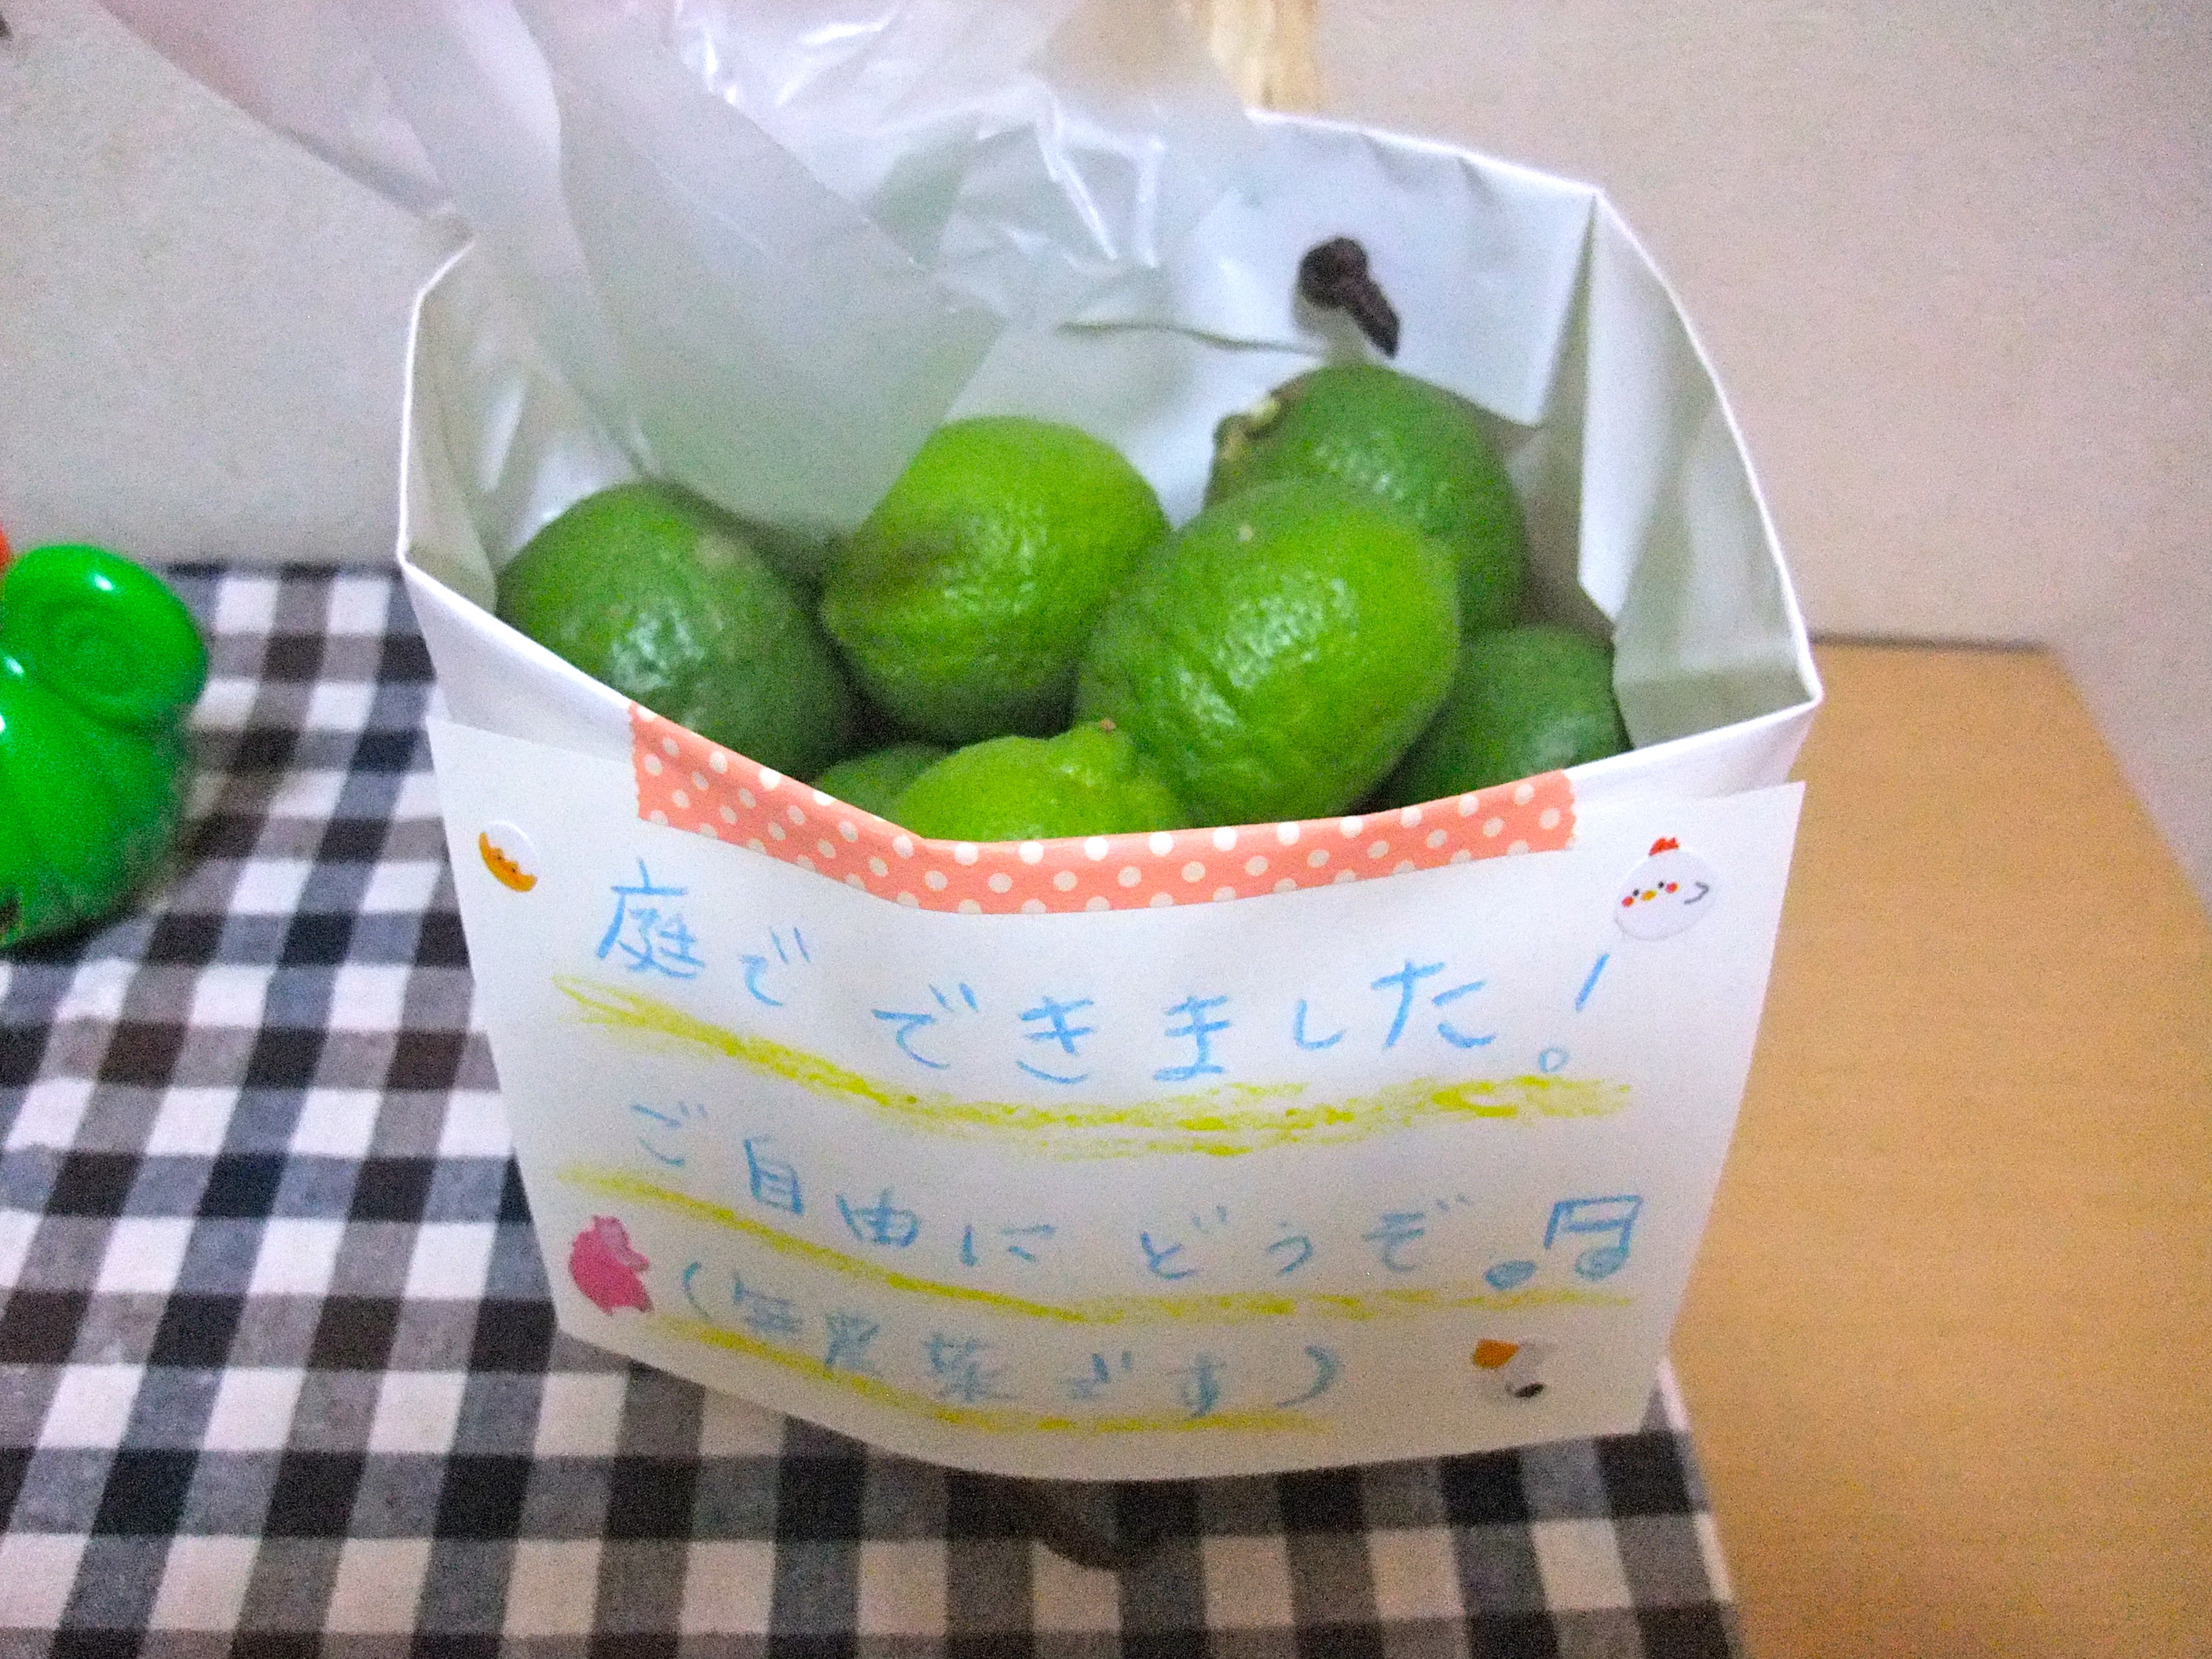 庭でできました!
ご自由にどうぞ♫
(無農薬です)